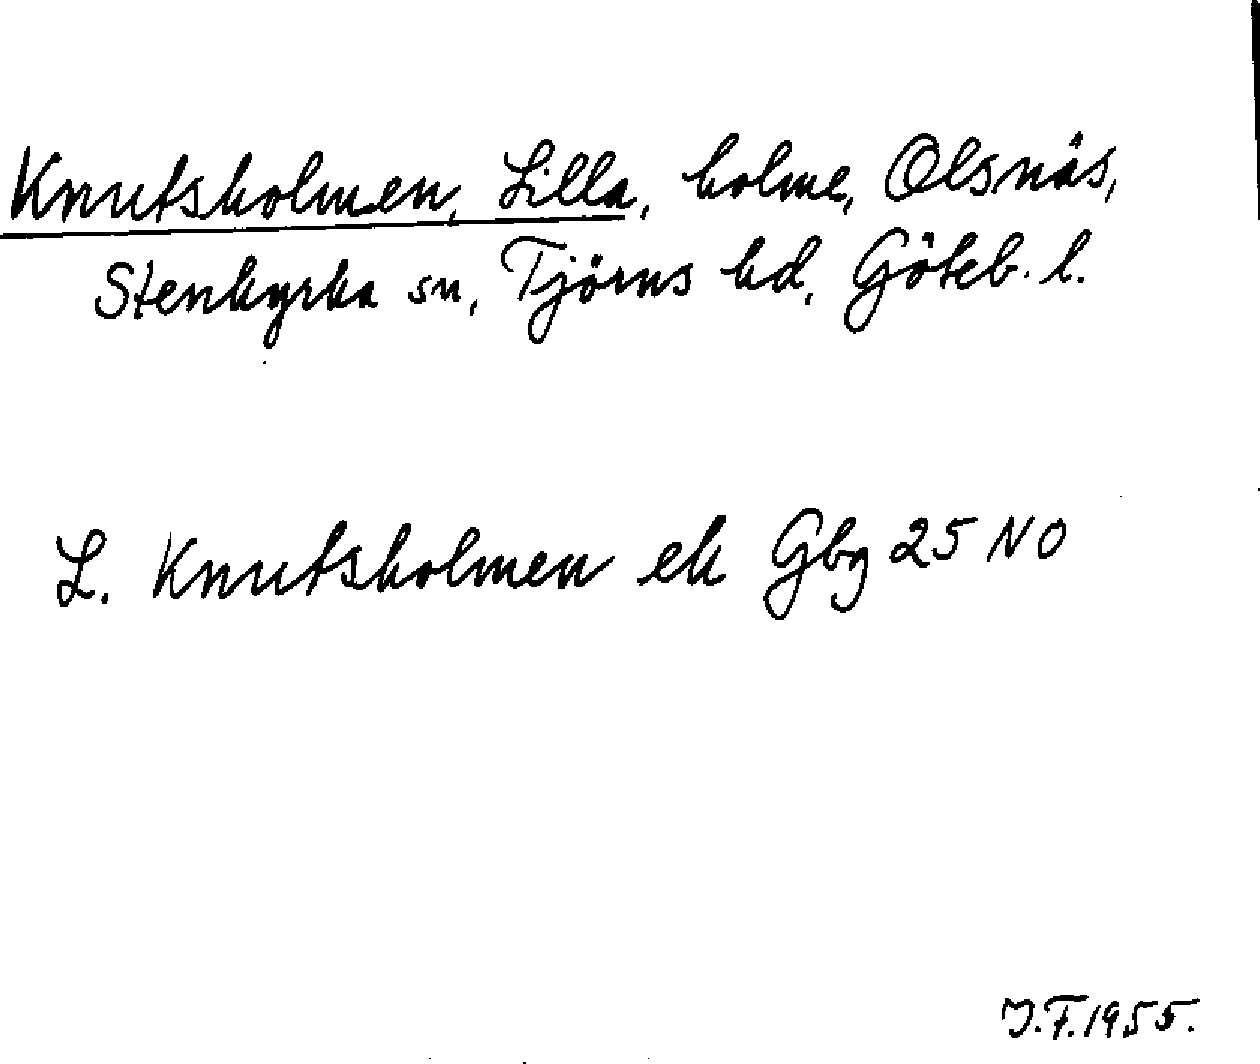 Knutsholmen, Lilla, holme, Olsnäs,
Stenkyrka sn, Tjörns hd, Göteb. l.
L. Knutsholmen ek Gbg 25 NO
J.F. 1955.